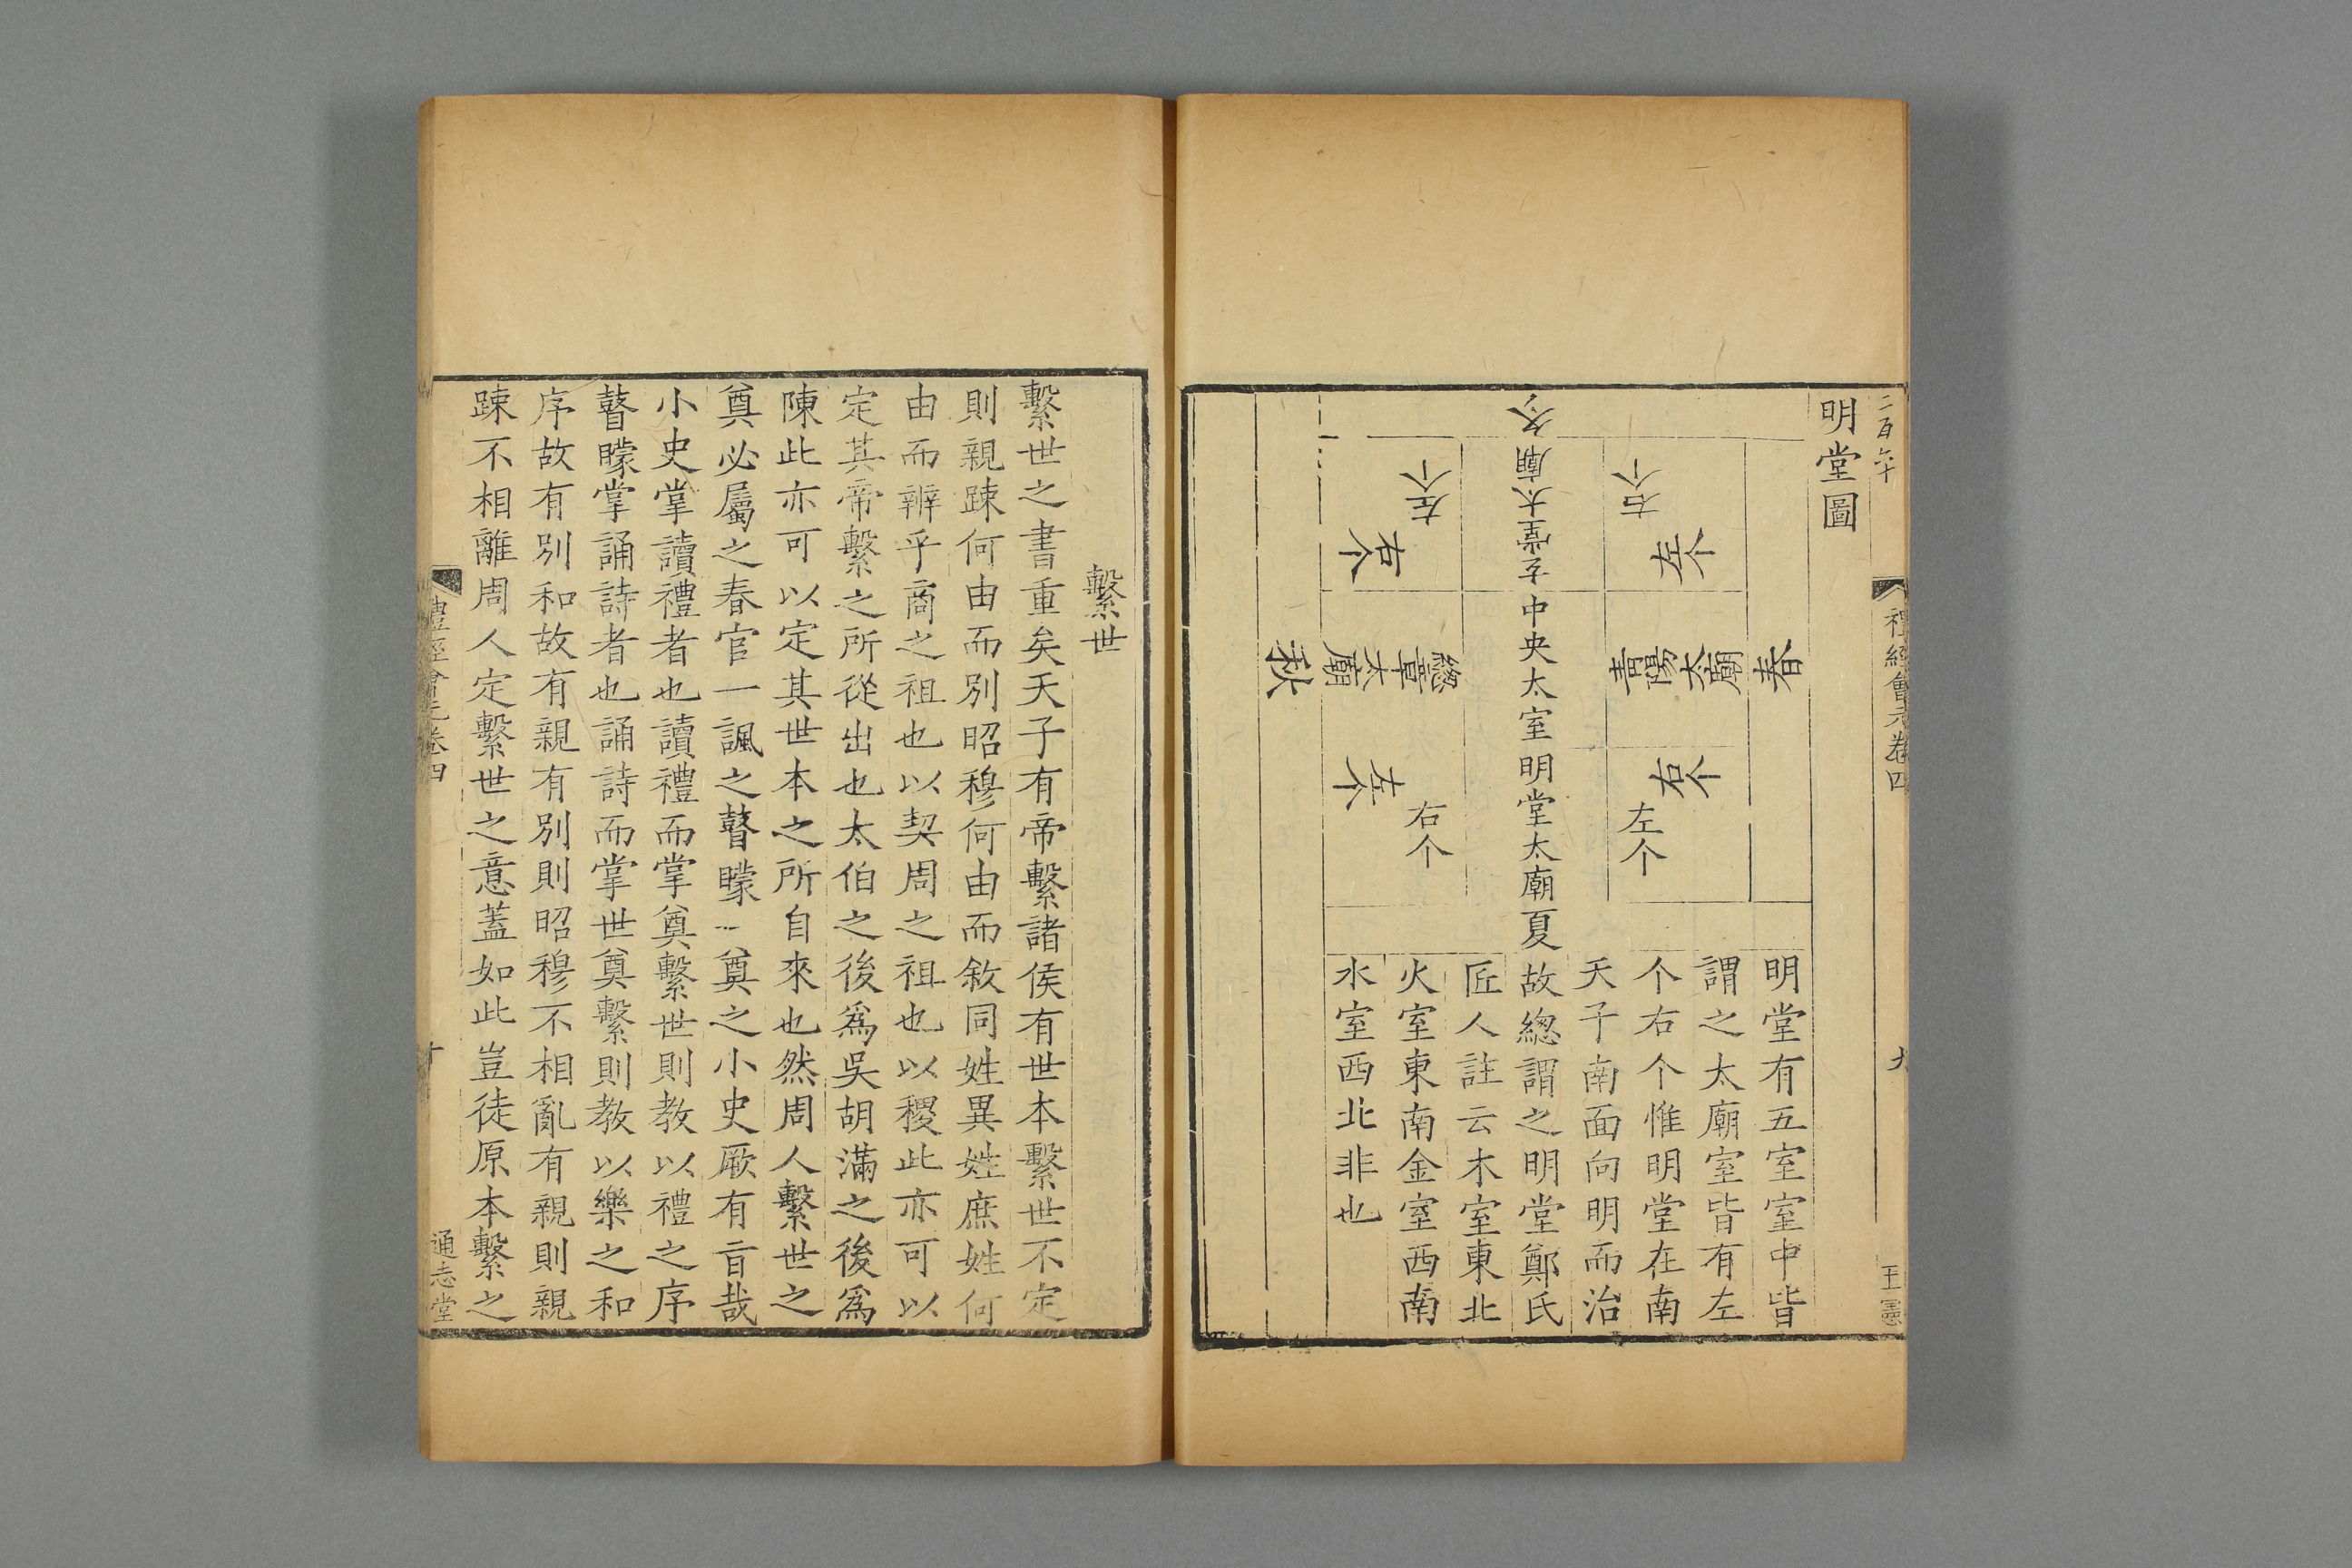 二百六十
禮經會元卷四
九
王憲
明堂圖
春
青陽太廟
左个
右个
冬
玄堂太廟
右个
左个
中央太室
明堂太廟
夏
左个
右个
總章太廟
右个
左个
秋
明堂有五室室中皆
謂之太廟室皆有左
个右个惟明堂在南
天子南面向明而治
故總謂之明堂鄭氏
匠人註云木室東北
火室東南金室西南
水室西北非也
繫世
繫世之書重矣天子有帝繫諸侯有世本繫世不定
則親踈何由而別昭穆何由而敘同姓異姓庶姓何
由而辨乎商之祖也以契周之祖也以稷此亦可以
定其帝繫之所從出也太伯之後爲吳胡滿之後爲
陳此亦可以定其世本之所自來也然周人繫世之
奠必屬之春官一諷之瞽矇一奠之小史厥有旨哉
小史掌讀禮者也讀禮而掌奠繫世則教以禮之序
瞽矇掌誦詩者也誦詩而掌世奠繫則教以樂之和
序故有別和故有親有別則昭穆不相亂有親則親
踈不相離周人定繫世之意蓋如此豈徒原本繫之
禮經會元卷四
十
通志堂